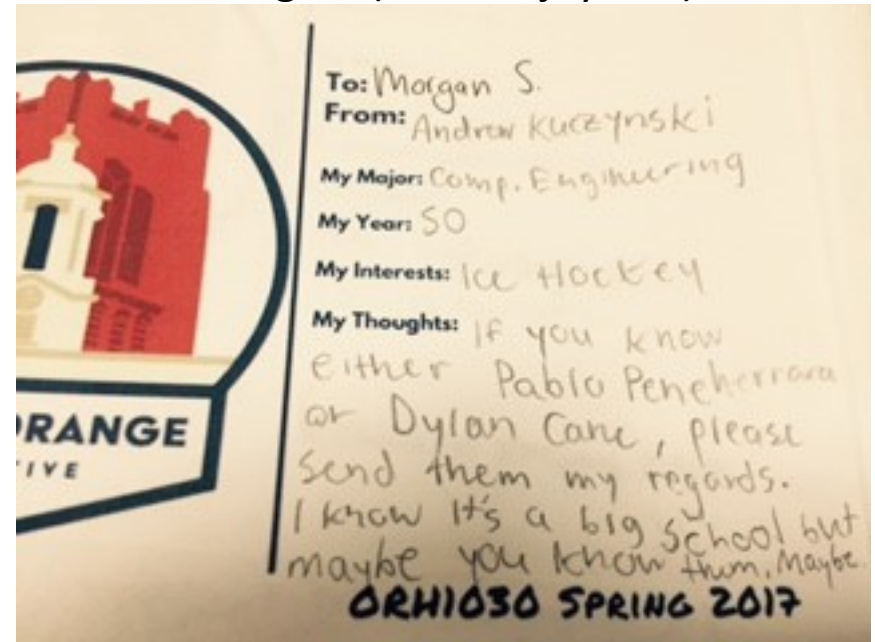 To: Morgan S.
From: Andrew Kuczynski
My Major: Comp. Engineering
My Year: SO
My Interests: Ice Hockey
My Thoughts: If you know
either Pablo Peneherrara
or Dylan Cane, please
send them my regards.
I know it's a big school but
maybe you know them. Maybe.
ORH1030 SPRING 2017
RANGE
IVE